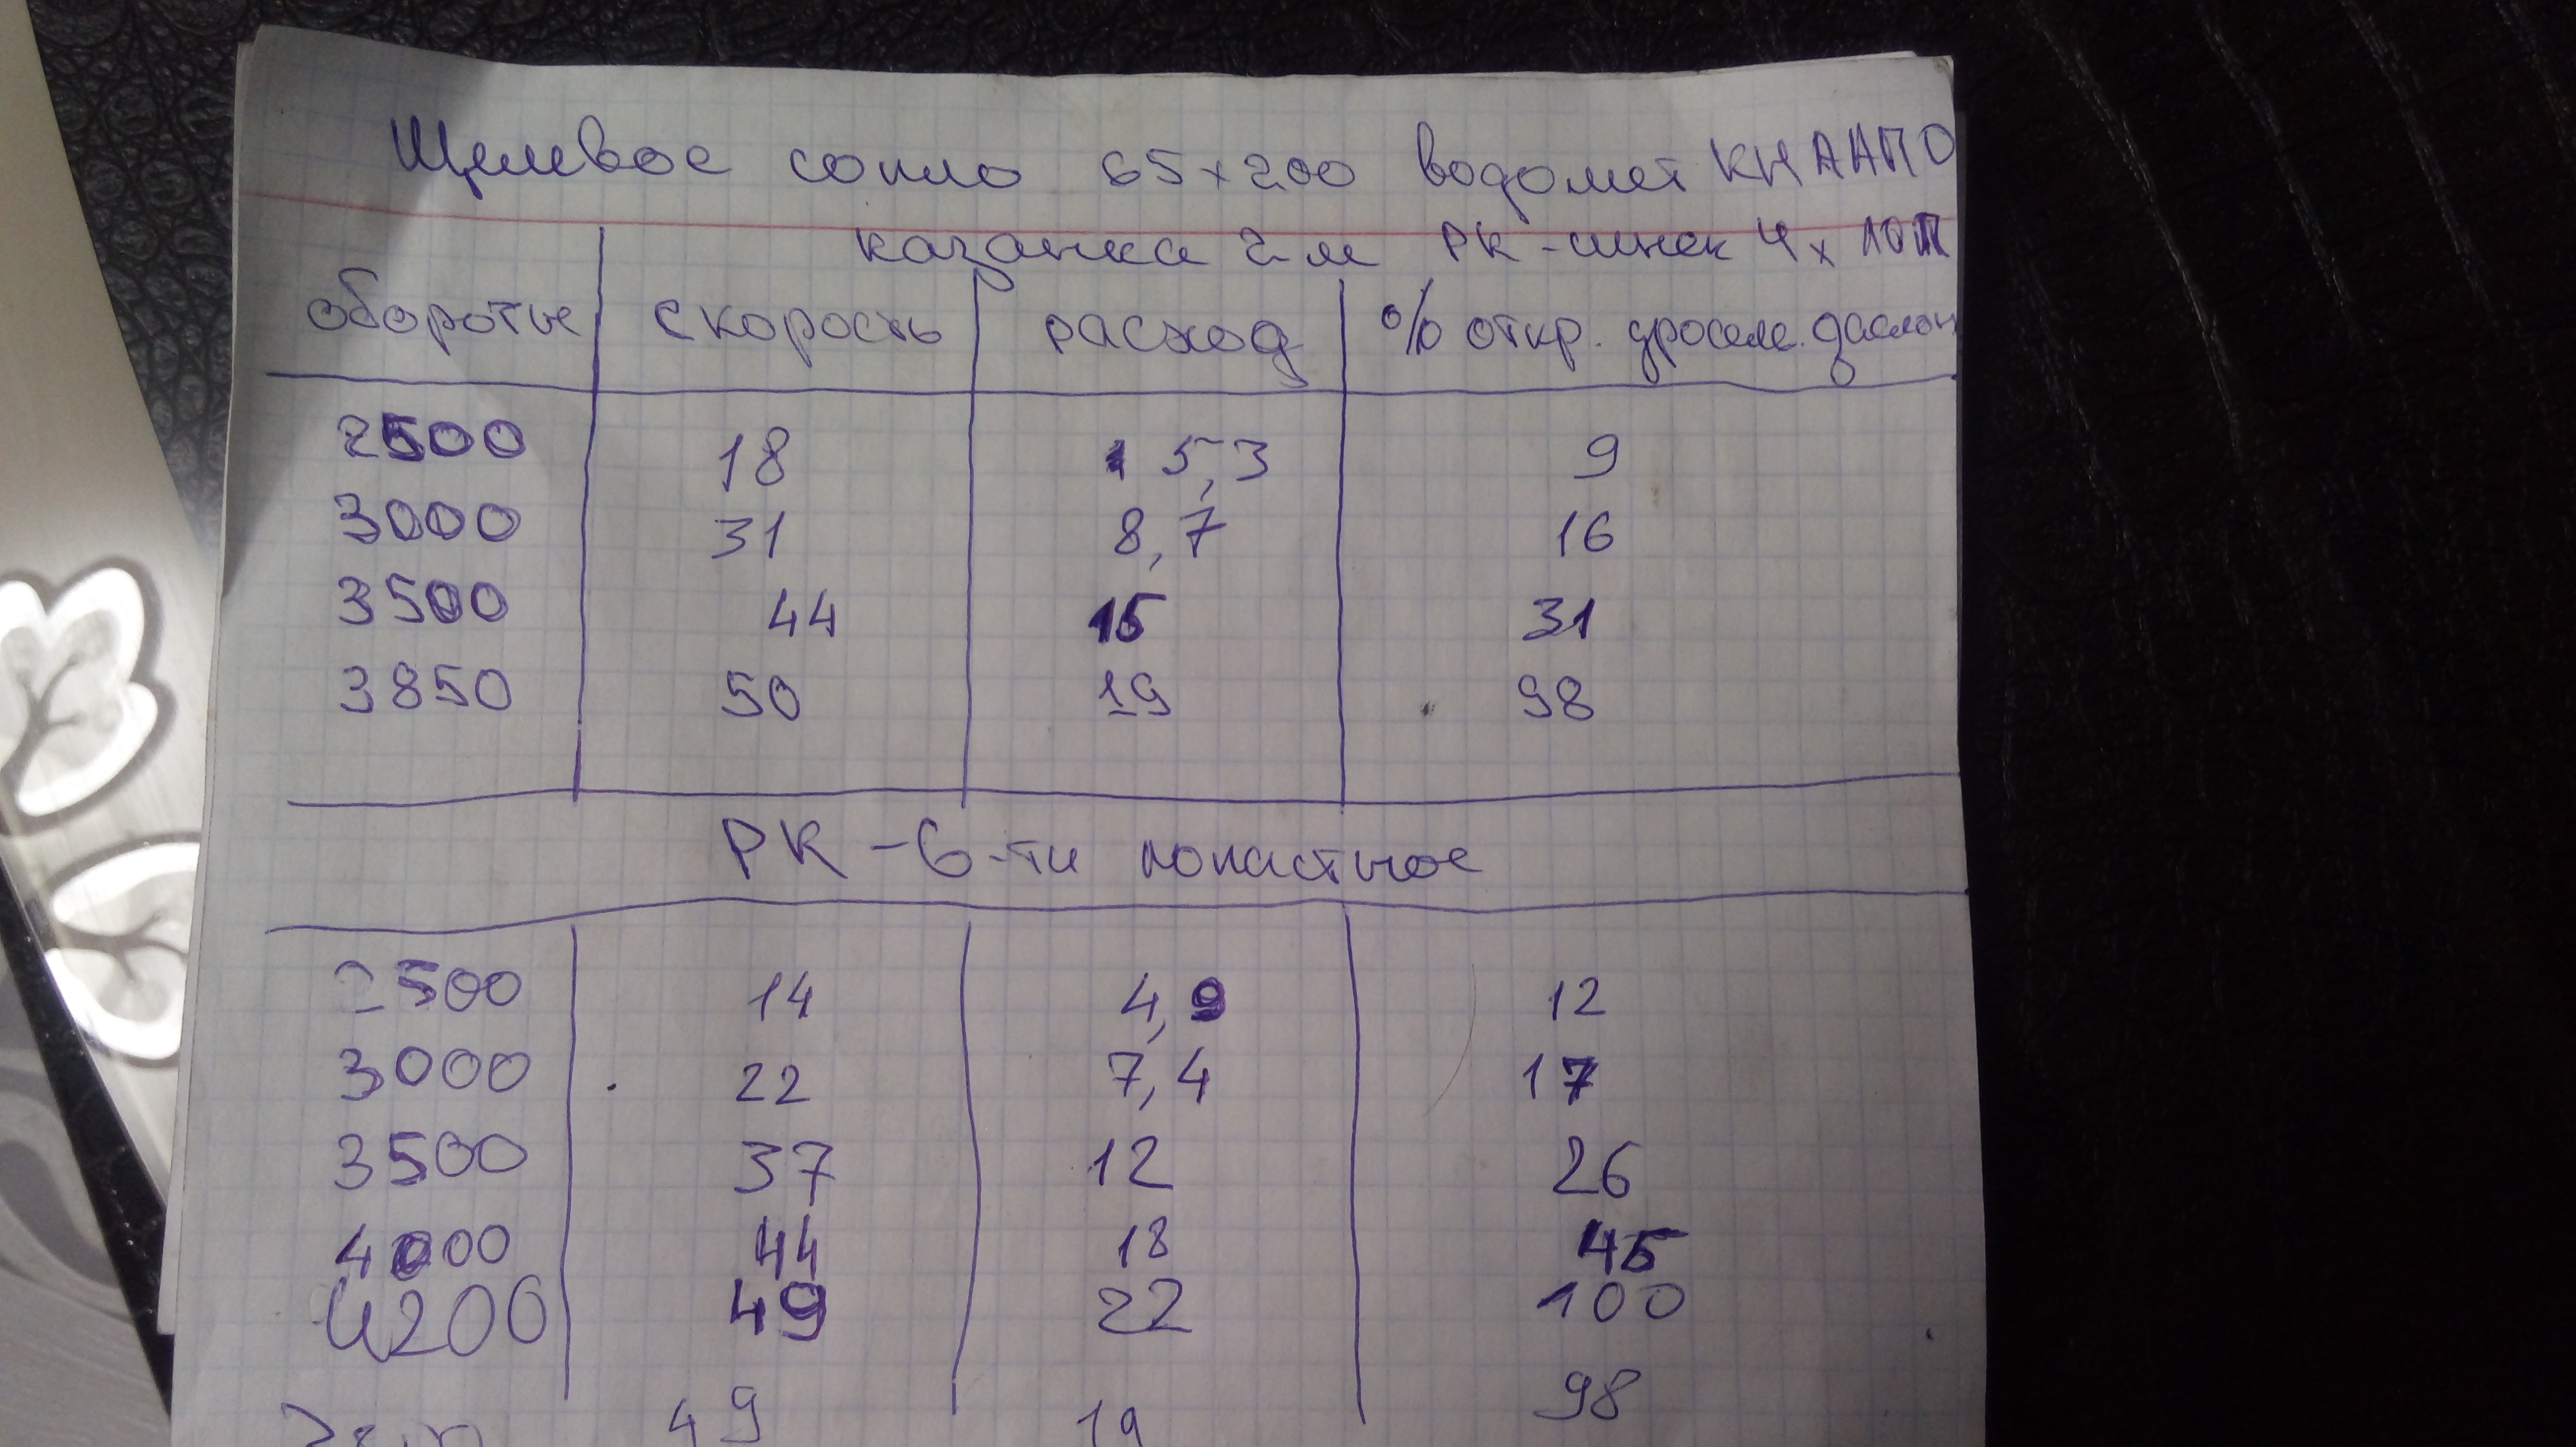 Щелевое сопло 65×200 водомет КНААПО
казанка 2-м РК-шнек 4×
обороты скорость расход % откр. дросел. заслон
2500 18 5,3 9
3000 31 8,7 16
3500 44 15 31
3850 50 19 98
РК-6-ти лопастное
2500 14 4,9 12
3000 22 7,4 17
3500 37 12 26
4000 44 18 45
4200 49 22 100
49 19 98